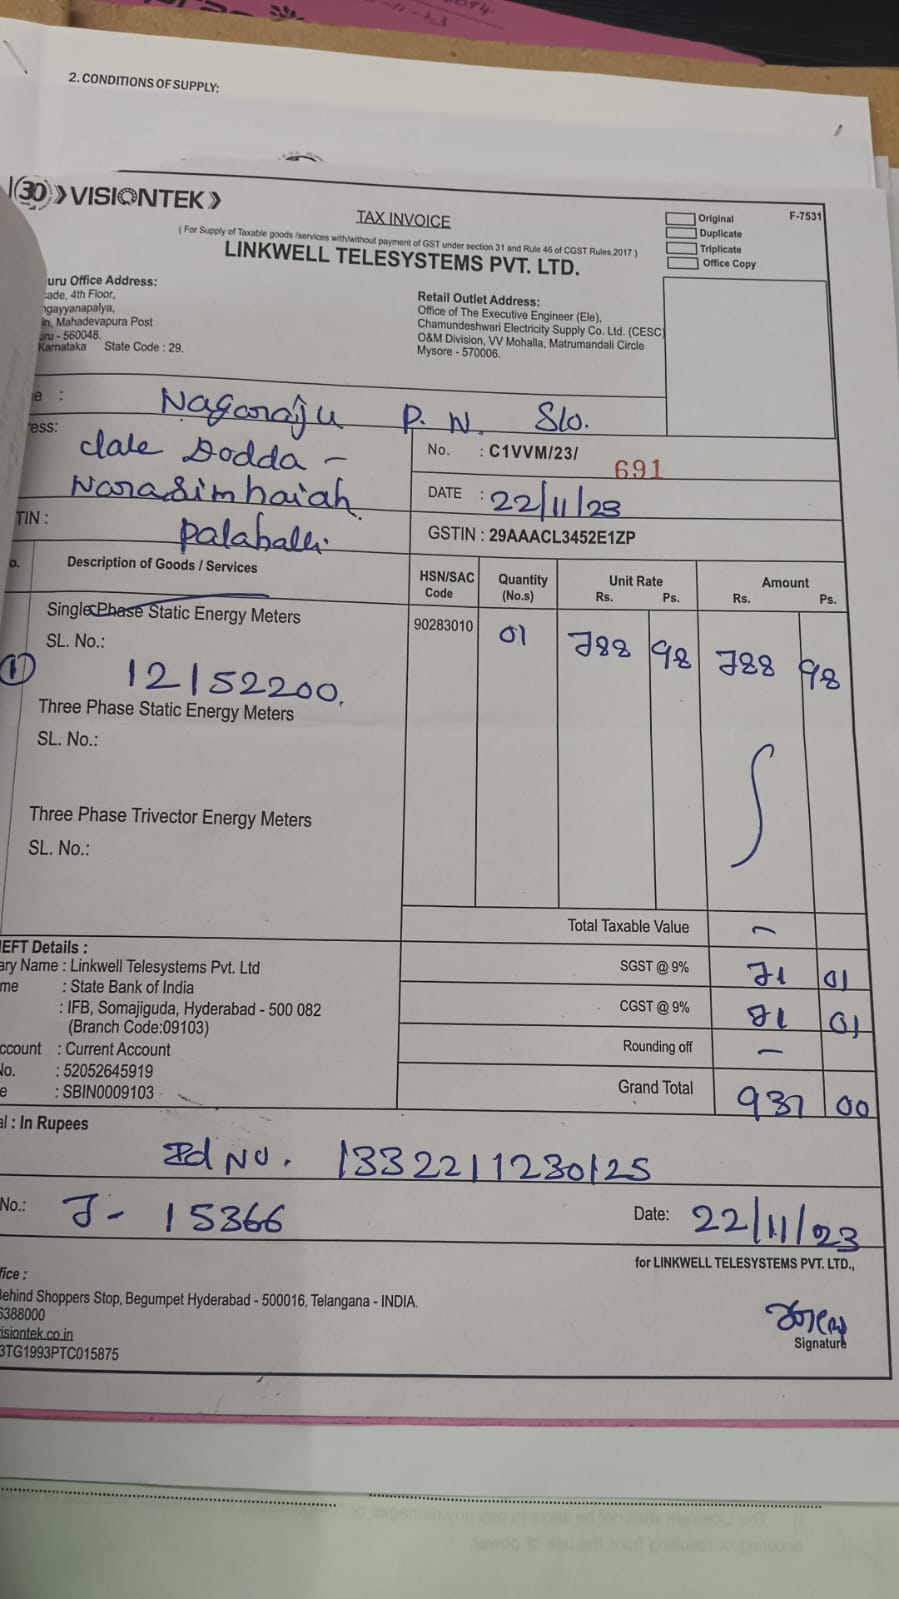 2. CONDITIONS OF SUPPLY:
30 VISIONTEK
TAX INVOICE
( For Supply of Taxable goods /services with/without payment of GST under section 31 and Rule 46 of CGST Rules,2017 )
LINKWELL TELESYSTEMS PVT. LTD.
Original
Duplicate
Triplicate
Office Copy
F-7531
uru Office Address:
cade, 4th Floor,
ngayyanapalya,
in, Mahadevapura Post
uru - 560048.
Karnataka State Code : 29.
Retail Outlet Address:
Office of The Executive Engineer (Ele),
Chamundeshwari Electricity Supply Co. Ltd. (CESC)
O&M Division, VV Mohalla, Matrumandali Circle
Mysore - 570006.
e : Nagaraju P. N. S/o.
ess: late Dodda -
Narasimhaiah.
Palahalli.
No. : C1VVM/23/ 691
DATE : 22/11/23
TIN :
GSTIN : 29AAACL3452E1ZP
o. Description of Goods / Services HSN/SAC Code Quantity (No.s) Unit Rate Rs. Ps. Amount Rs. Ps.
Single Phase Static Energy Meters 90283010 01 788 98 788 98
SL. No.:
1 12152200.
Three Phase Static Energy Meters
SL. No.:
Three Phase Trivector Energy Meters
SL. No.:
Total Taxable Value -
SGST @ 9% 71 01
CGST @ 9% 71 01
Rounding off -
Grand Total 931 00
EFT Details :
ary Name : Linkwell Telesystems Pvt. Ltd
me : State Bank of India
: IFB, Somajiguda, Hyderabad - 500 082
(Branch Code:09103)
ccount : Current Account
No. : 52052645919
e : SBIN0009103
al : In Rupees
Id No. 1332211230125
No.: J- 15366
Date: 22/11/23
for LINKWELL TELESYSTEMS PVT. LTD.,
fice :
Behind Shoppers Stop, Begumpet Hyderabad - 500016, Telangana - INDIA.
6388000
isiontek.co.in
3TG1993PTC015875
Signature